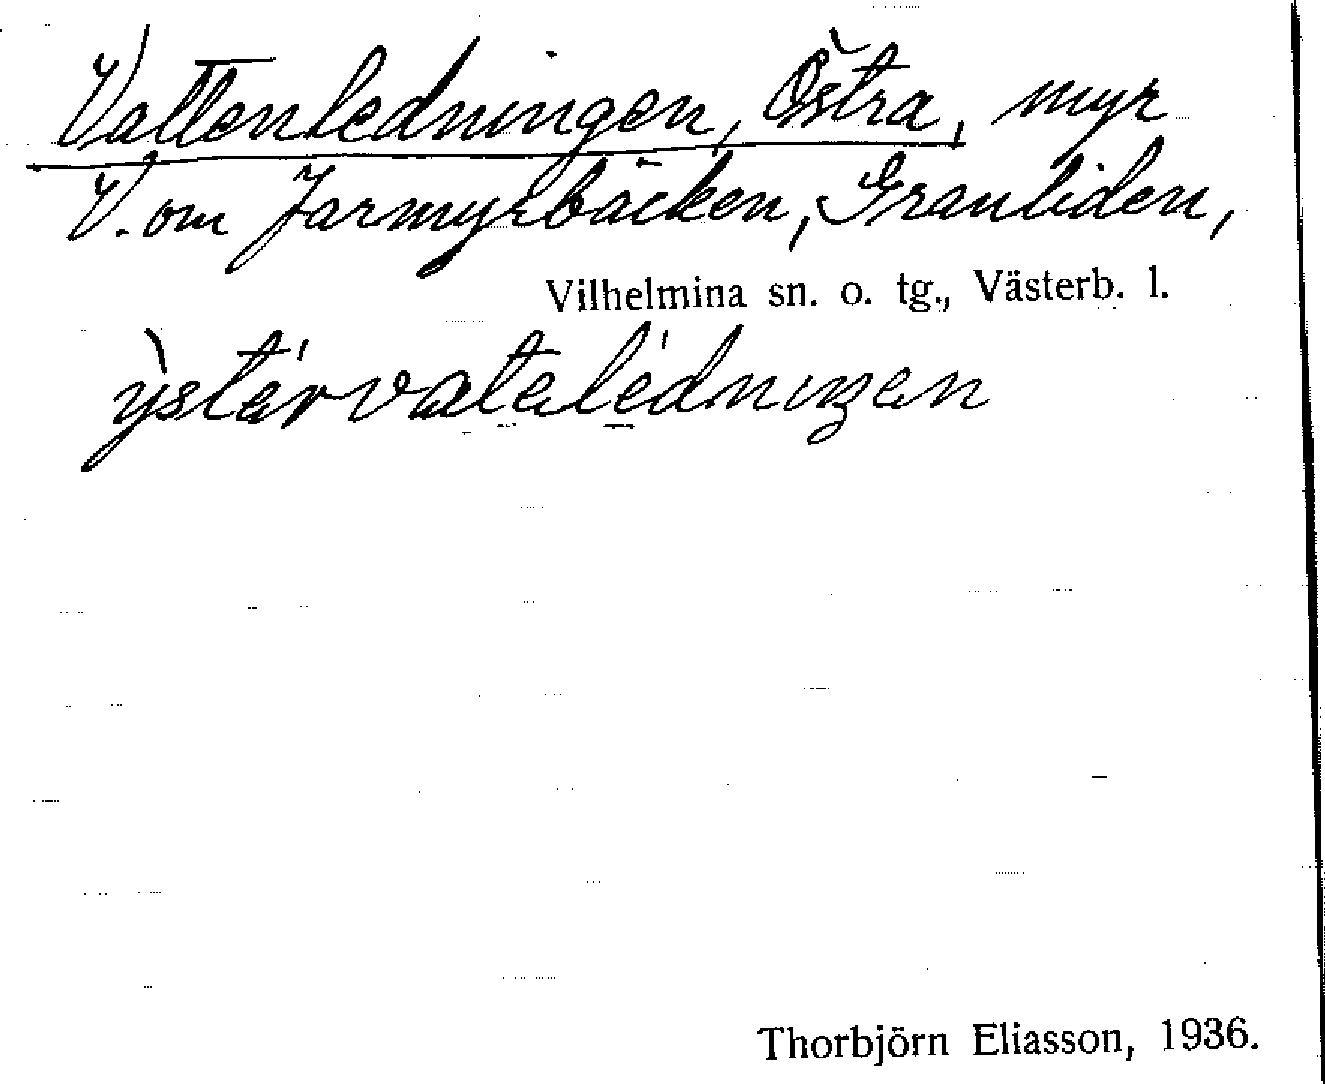 Vattenledningen, Östra, myr
V. om Jarmyrbäcken, Granliden,
Vilhelmina sn. o. tg., Västerb. l.
ỳstérvatelédningen
Thorbjörn Eliasson, 1936.